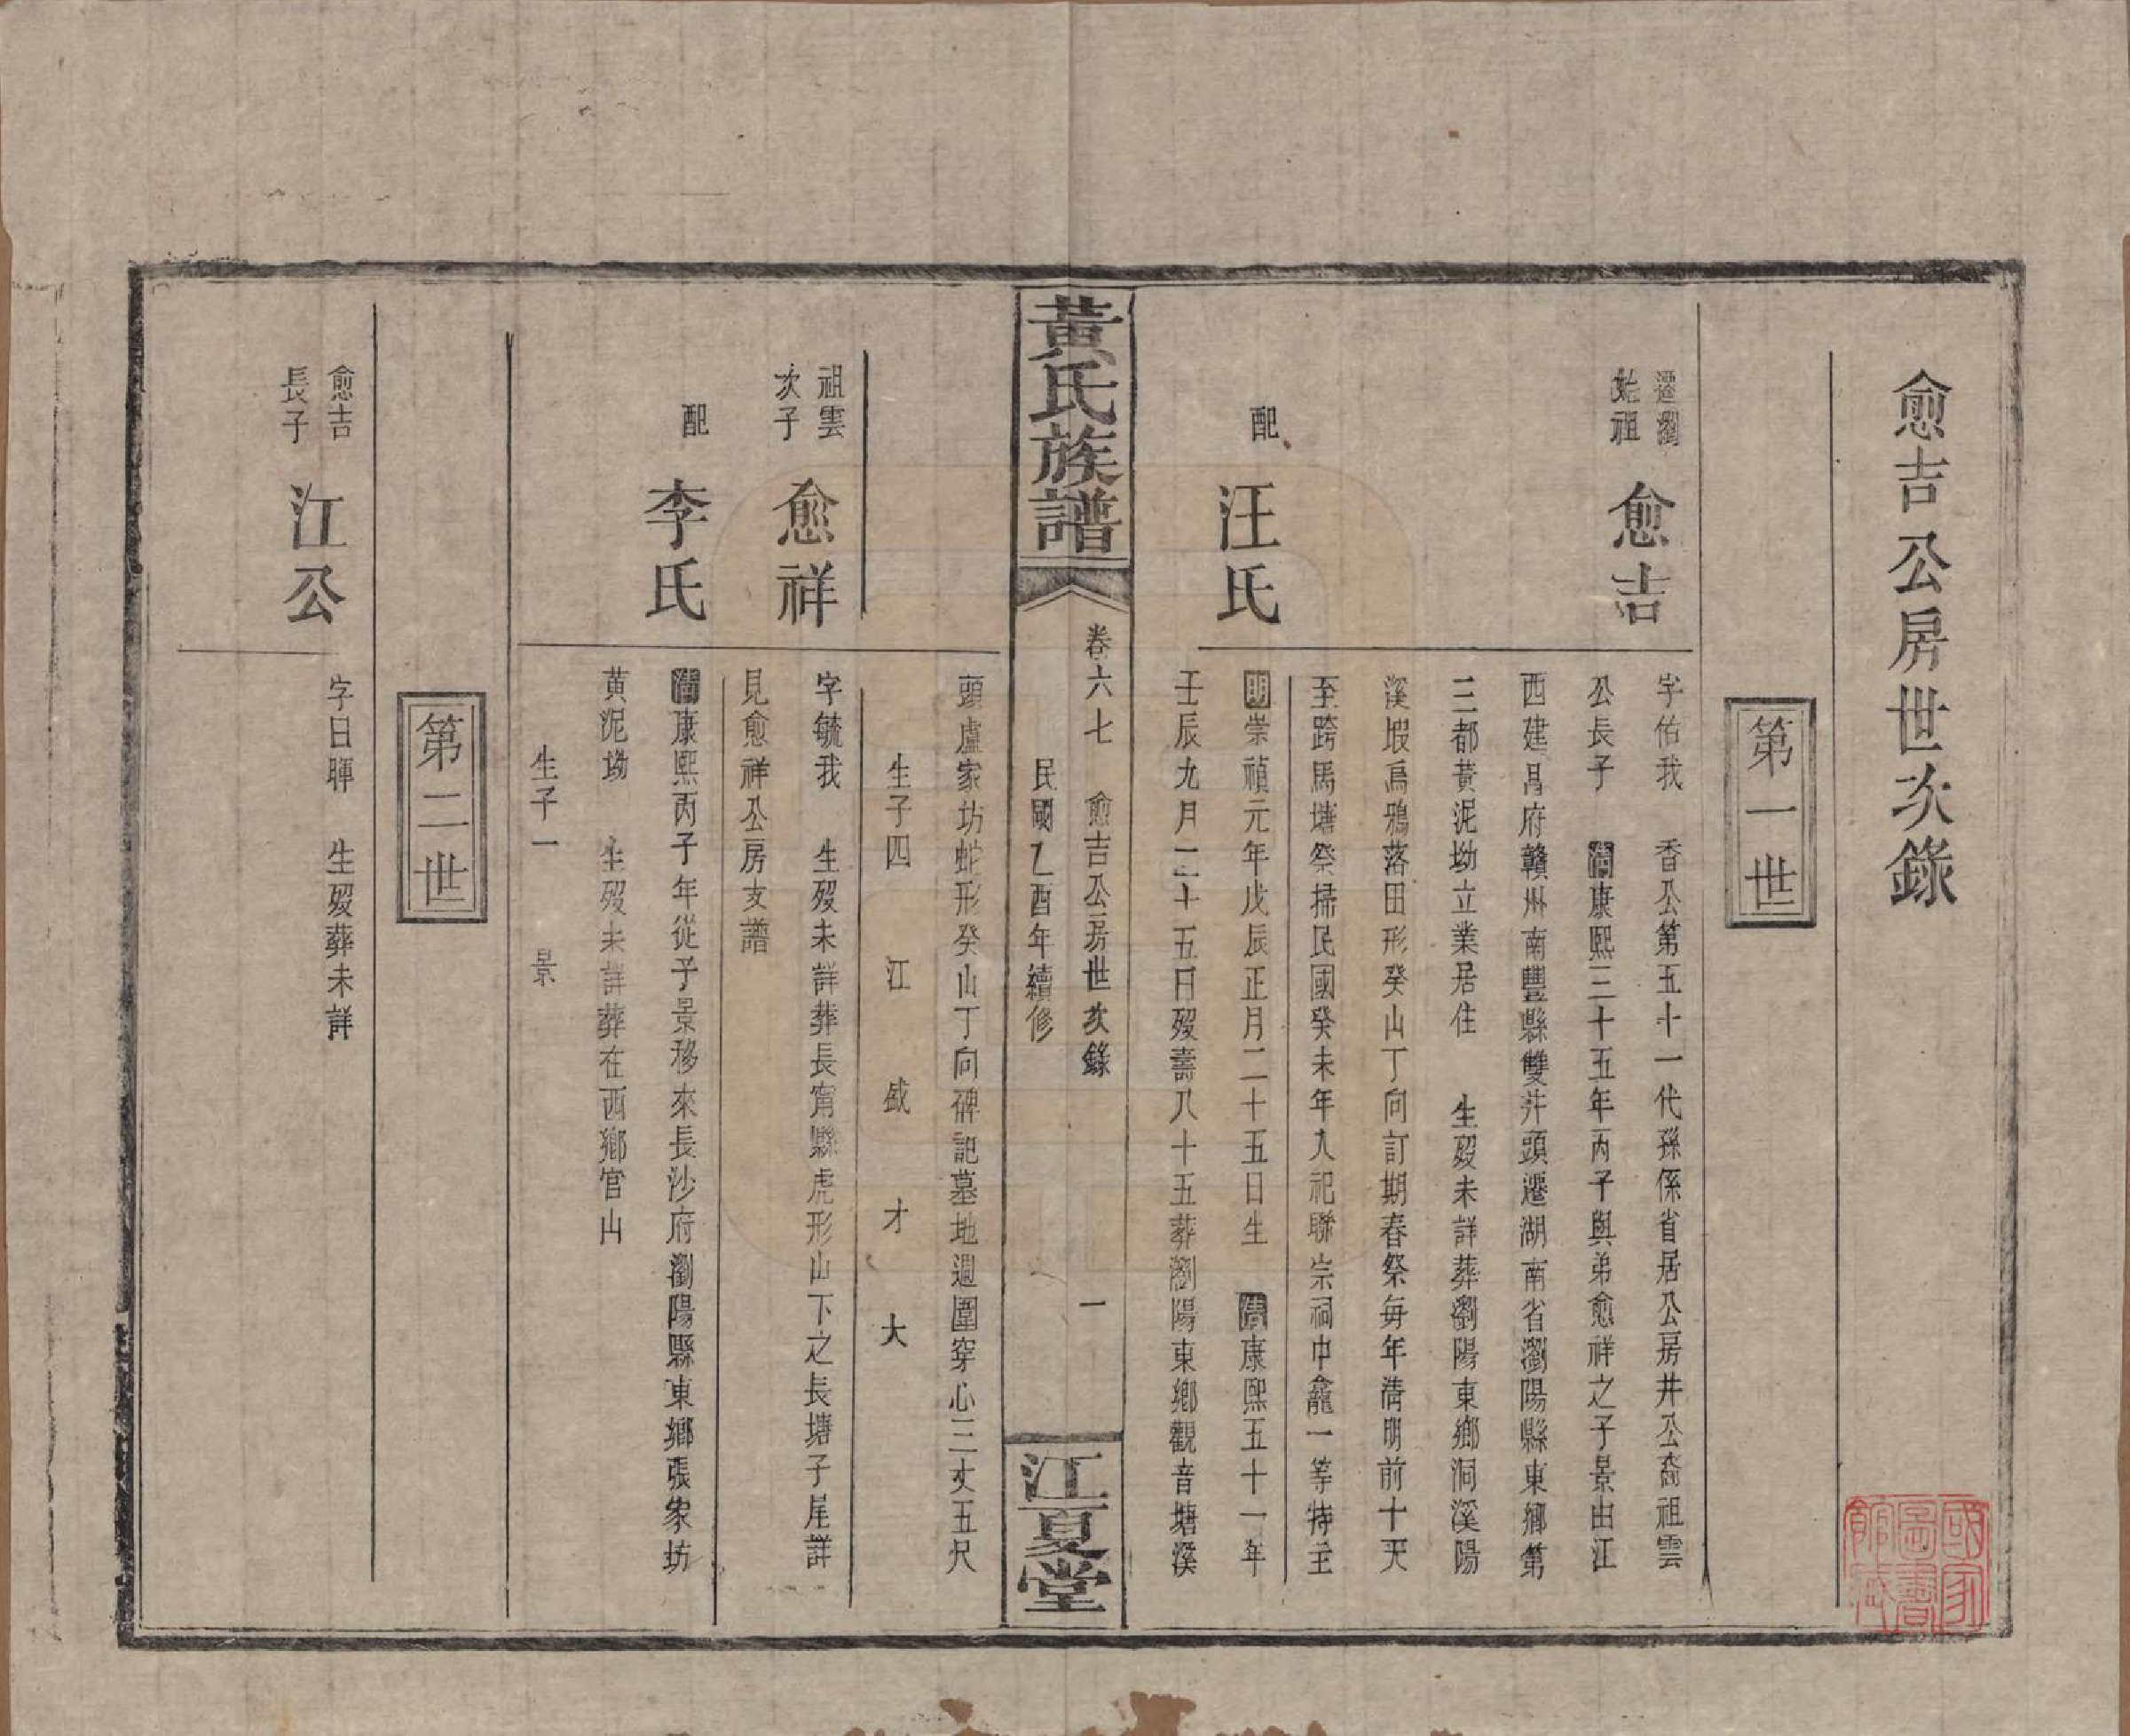 愈吉公房世次錄
第一世
遷瀏
始祖
愈吉
字佑我　香公第五十一代孫係省居公房井公裔祖雲
公長子　清康熙三十五年丙子與弟愈祥之子景由江
西建昌府贛州南豐縣雙井頭遷湖南省瀏陽縣東鄉第
三都黃泥坳立業居住　生歿未詳葬瀏陽東鄉洞溪陽
溪塅烏鴉落田形癸山丁向訂期春祭每年清明前十天
至跨馬塘祭掃民國癸未年入祀聯宗祠中龕一等特主
配
汪氏
明崇禎元年戊辰正月二十五日生　清康熙五十一年
壬辰九月二十五日歿壽八十五葬瀏陽東鄉觀音塘溪
黃氏族譜
卷六七　愈吉公房世次錄　一
民國乙酉年續修
江夏堂
頭盧家坊蛇形癸山丁向碑記墓地週圍穿心三丈五尺
生子四　江　盛　才　大
祖雲
次子
愈祥
字毓我　生歿未詳葬長甯縣虎形山下之長塘子尾詳
見愈祥公房支譜
配
李氏
清康熙丙子年從子景移來長沙府瀏陽縣東鄉張家坊
黃泥坳　生歿未詳葬在西鄉官山
生子一　景
第二世
愈吉
長子
江公
字日暉　生歿葬未詳
國家圖書館藏